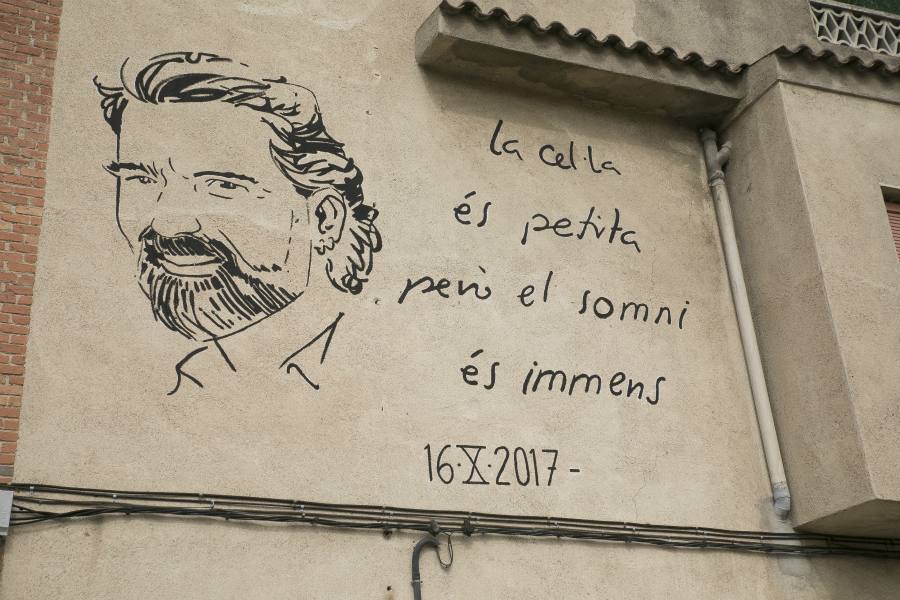 la cel·la
és petita
però el somni
és immens
16·X·2017-